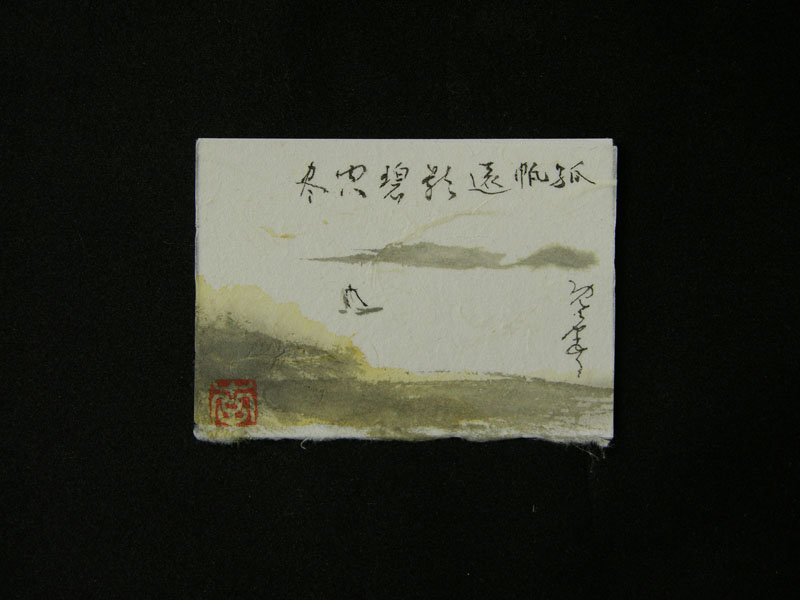 孤帆遠影碧空尽